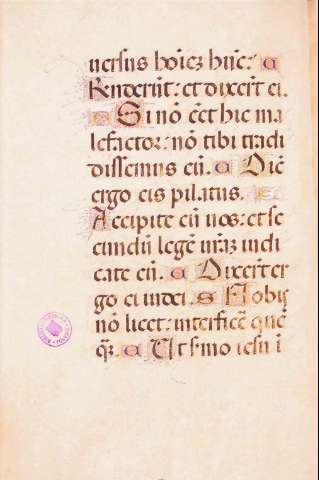 uersus hoiez hūc: a
Rnderūt: et dixerūt ei.
Si nō eēt hic ma
lefactor: nō tibi tradi
dissemus eū. a Dic̄
ergo eis pilatus. e
Accipite eū uos: et se
cundū legē urāz iudi
cate eū. a Dixerūt er
go ei iudei. s Nobis
nō licet: interficē quē
q̄z. a Ut s͛mo iesu i